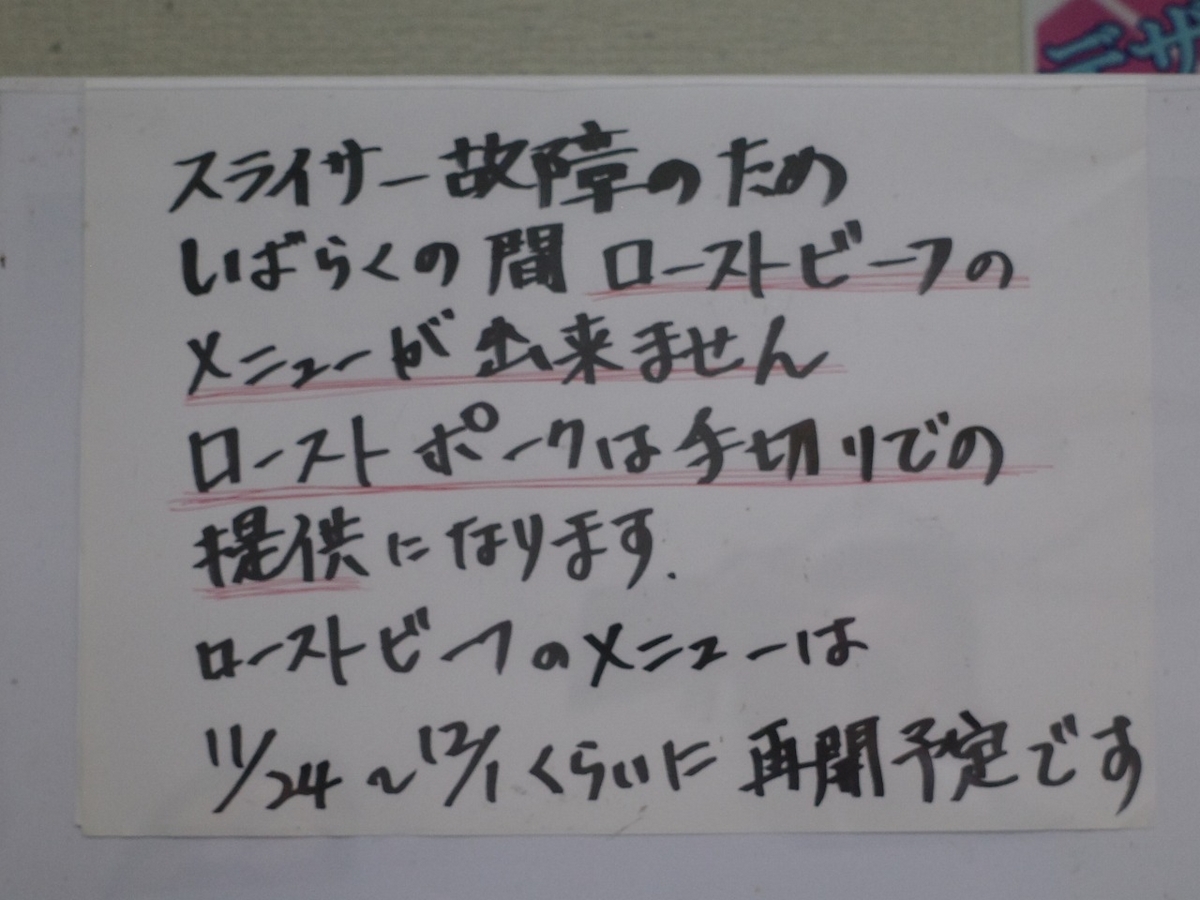 デザ
スライサー故障のため
しばらくの間 ローストビーフの
メニューが出来ません
ローストポークは手切りでの
提供になります.
ローストビーフのメニューは
11/24~12/1くらいに再開予定です